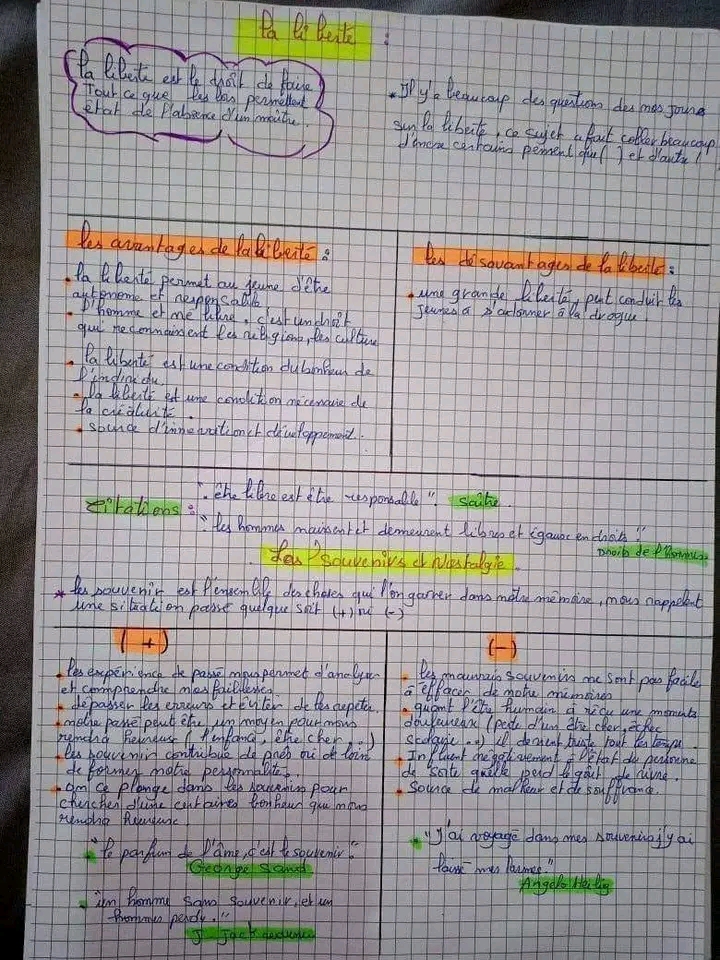 La liberté :
La liberté est le droît de faire
Tout ce que les lois permettent
état de l'absence d'un maître.
* Il y'a beaucoup des questions des nos jours
sur la liberté, ce sujet a fait coller beaucoup
d'encre certains pensent que ( ) et d'autre (
les avantages de la liberté :
• la liberté permet au jeune d'être
autonome et responsable
• l'homme et né libre, c'est un droît
qui reconnaissent les religions, les culture
• la liberté est une condition du bonheur de
l'individu.
• la liberté est une condition nécessaire de
la créativité.
• source d'innovation et développement.
les désavantages de la liberté :
• une grande liberté, peut conduit les
jeunes à s'adonner à la drogue.
citations :
". être libre est être responsable". Saître.
"les hommes naissent et demeurent libres et égaux en droits"
Droits de l'Hommes
Les souvenirs et Nostalgie.
* les souvenir est l'ensemble des choses qui l'on garrer dans notre mémoire, nous rappelent
une situation passé quelque soit (+) ni (-)
(+)
• les expérience de passé nous permet d'analyser
et comprendre nos faiblesses.
• dépasser les erreurs et éviter de les repéter.
• notre passé peut être un moyen pour nous
rendra heureuse (l'enfance, être cher ...)
• les souvenir contribue de près où de loin
de former notre personnalité.
• on ce plonge dans les souvenirs pour
chercher d'une certaines bonheur que nous
rendra heureuse
• "le parfum de l'âme, c'est le souvenir."
George Sand
• "un homme sans souvenir, et un
hommes perdu."
J. Jack
(-)
• les mauvais souvenirs ne sont pas facile
à effacer de notre mémoires
• quant l'être humain à vécu une moments
douloureux (perte d'un être cher, échec
scolaire ...) il devient triste tout les temps.
• Influent négativement à l'état du personne
de sorte quelle perd le goût de vivre.
• Source de malheur et de souffrance.
• "J'ai voyagé dans mes souvenirs j'y ai
laissé mes larmes."
Angelo Heilig